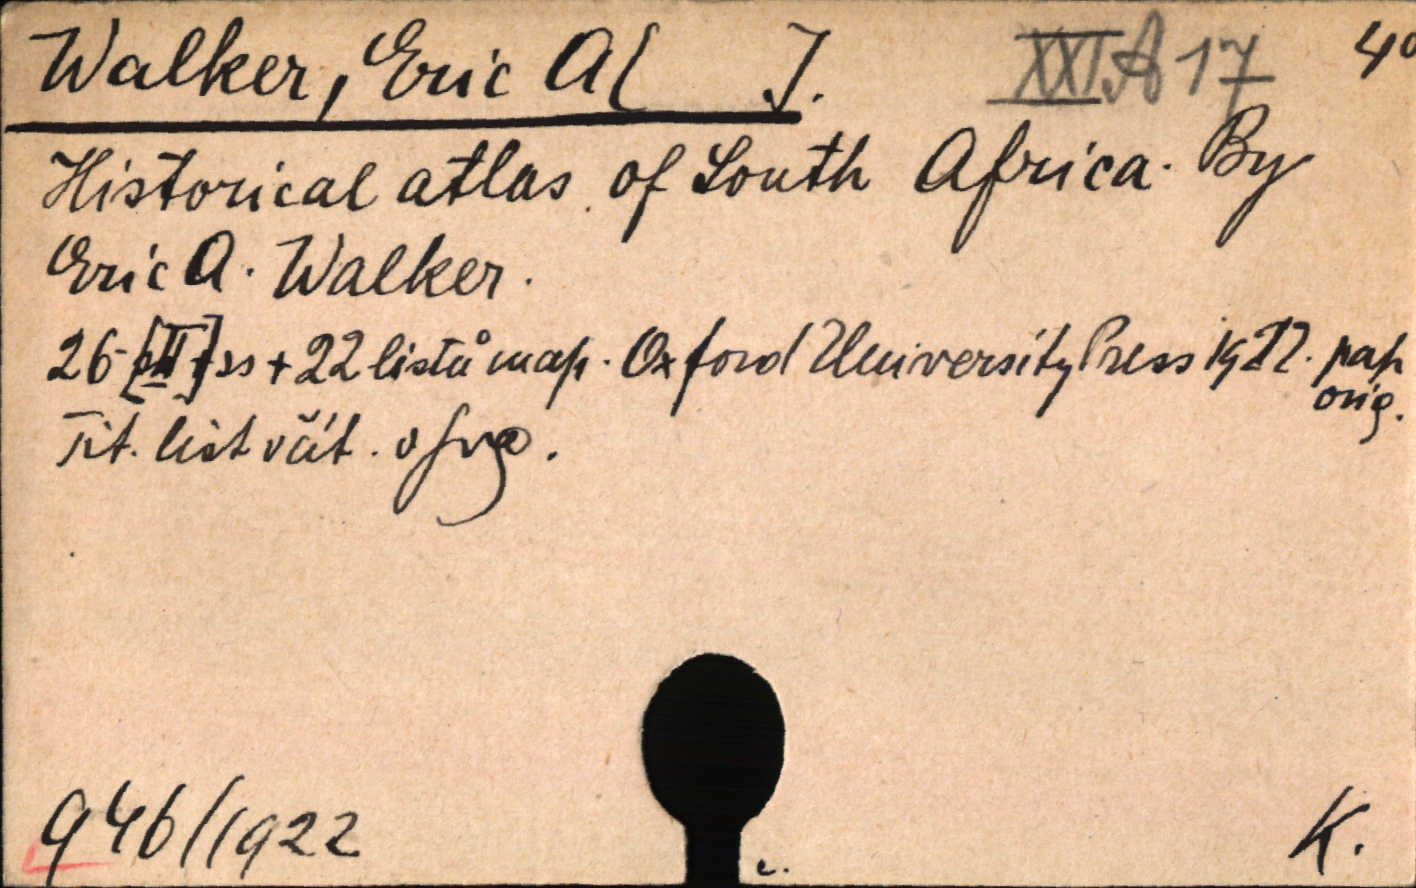 Walker, Eric A[ ]. XXI.A 17 4°
Historical atlas of South Africa. By
Eric A. Walker.
26 ss + 22 listů map. Oxford University Press 1922. pap
orig.
Tit. list včít.
946/1922 K.
c.